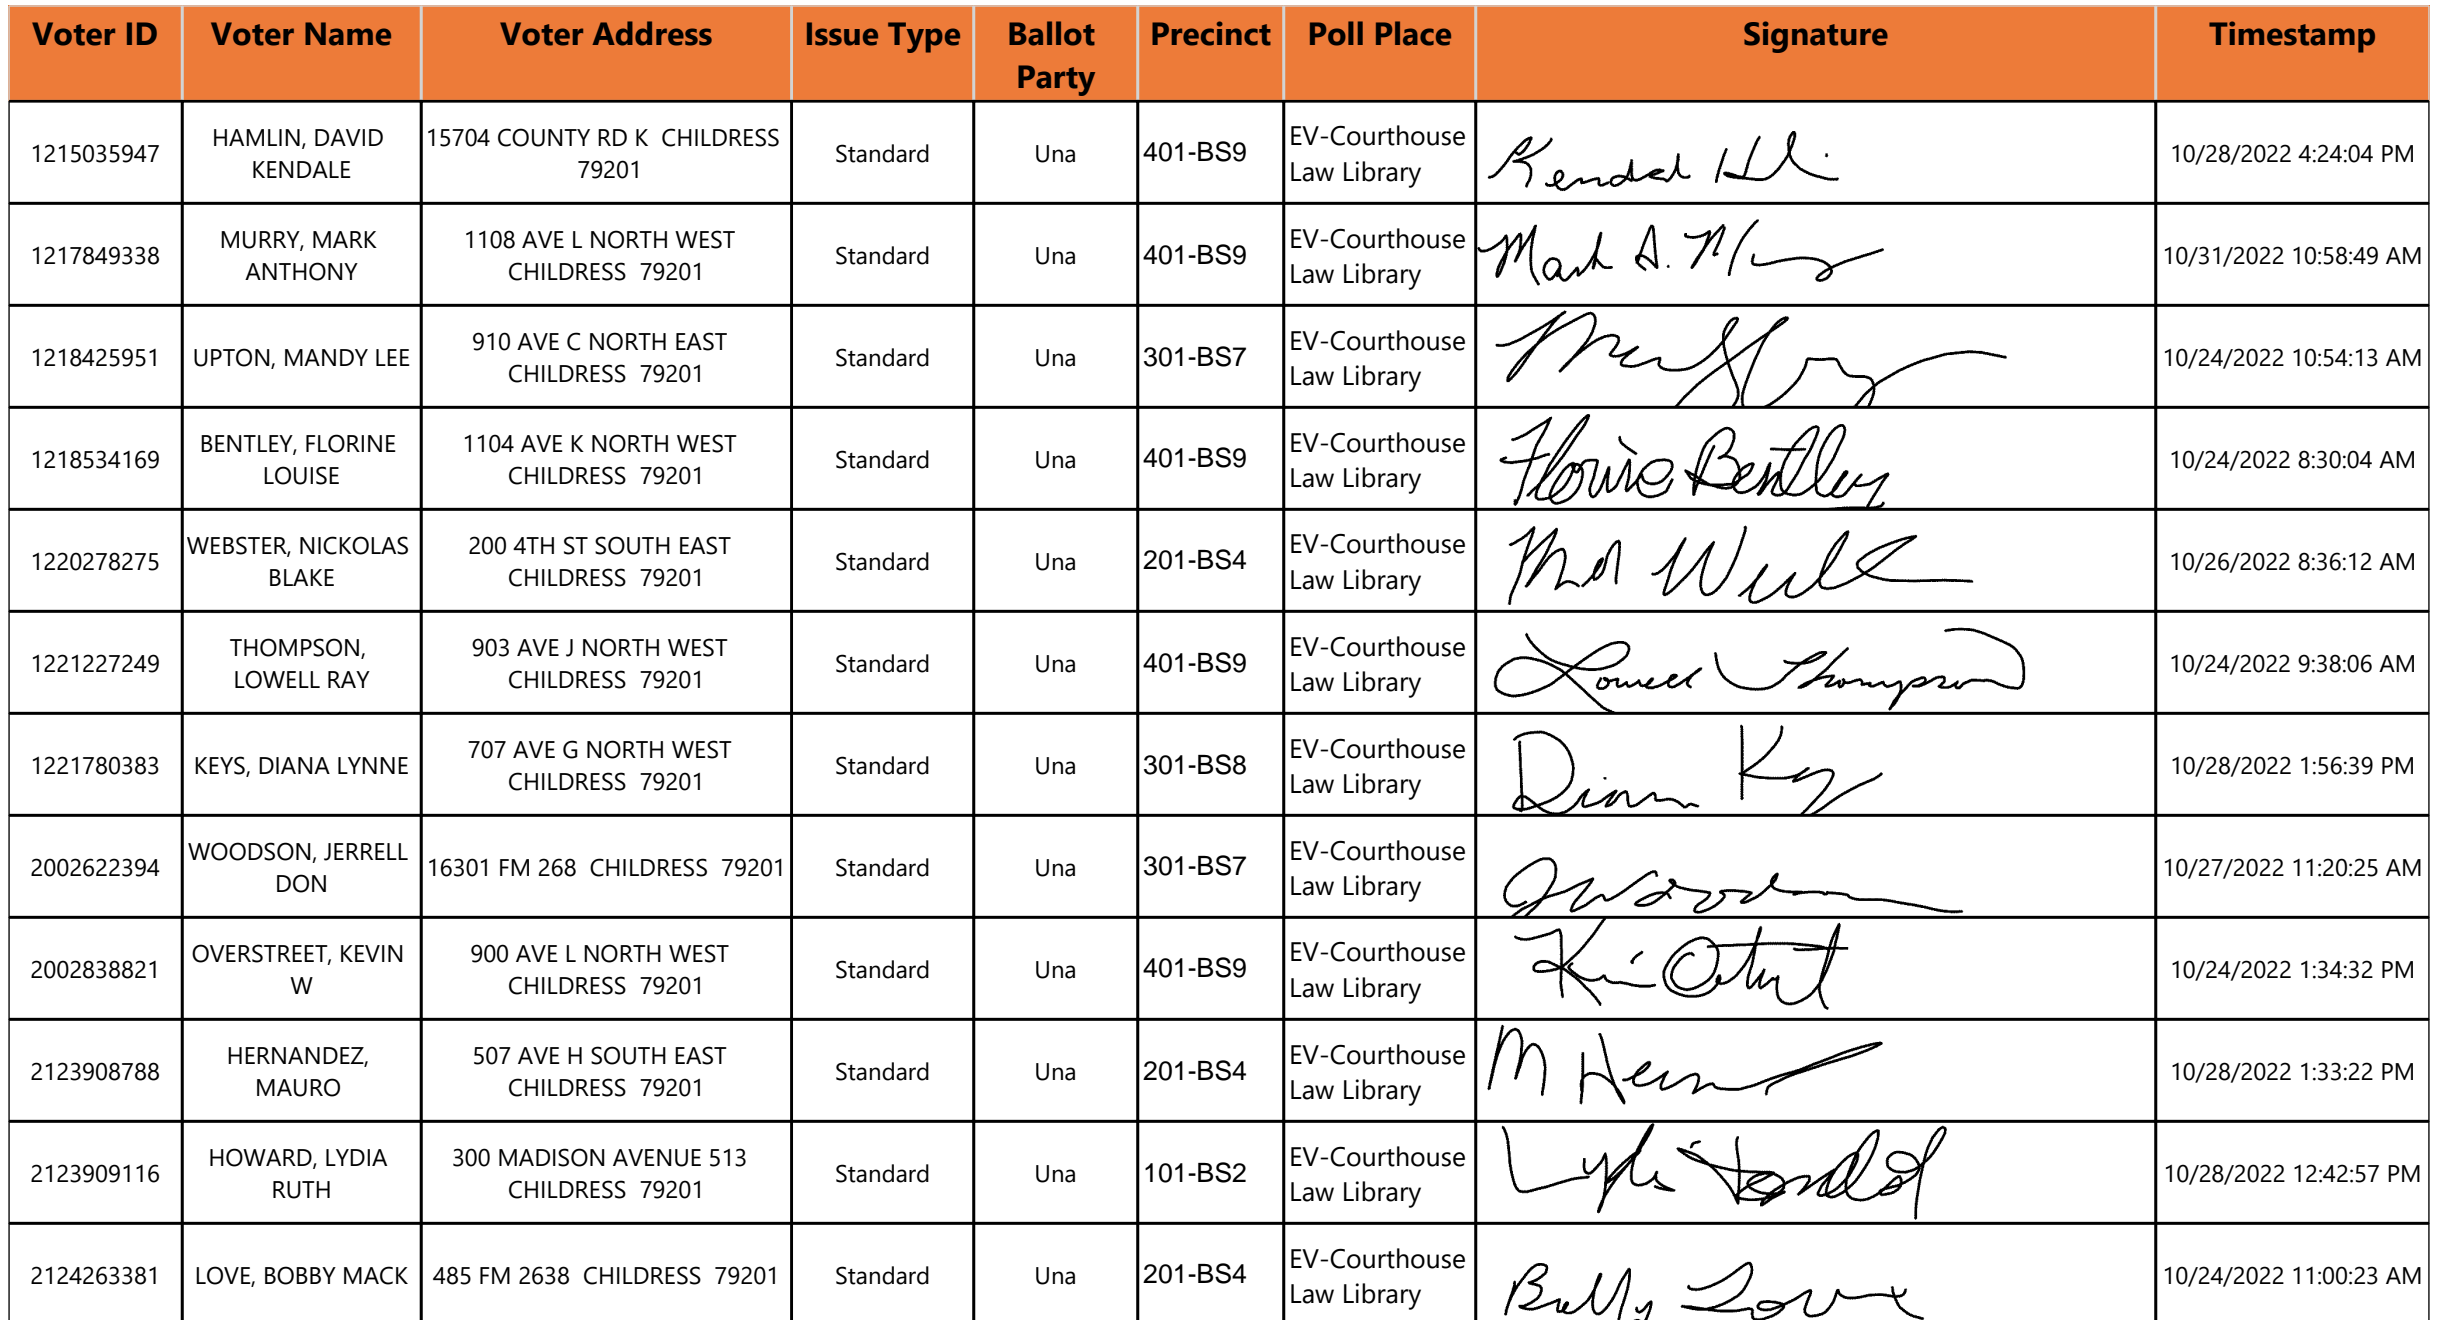 Voter ID
Voter Name
Voter Address
Issue Type
Ballot
Party
Precinct
Poll Place
Signature
Timestamp
1215035947
HAMLIN, DAVID
KENDALE
15704 COUNTY RD K CHILDRESS
79201
Standard
Una
401-BS9
EV-Courthouse
Law Library
Kendal
10/28/2022 4:24:04 PM
1217849338
MURRY, MARK
ANTHONY
1108 AVE L NORTH WEST
CHILDRESS 79201
Standard
Una
401-BS9
EV-Courthouse
Law Library
Mark A.
10/31/2022 10:58:49 AM
1218425951
UPTON, MANDY LEE
910 AVE C NORTH EAST
CHILDRESS 79201
Standard
Una
301-BS7
EV-Courthouse
Law Library
10/24/2022 10:54:13 AM
1218534169
BENTLEY, FLORINE
LOUISE
1104 AVE K NORTH WEST
CHILDRESS 79201
Standard
Una
401-BS9
EV-Courthouse
Law Library
Florine Bentley
10/24/2022 8:30:04 AM
1220278275
WEBSTER, NICKOLAS
BLAKE
200 4TH ST SOUTH EAST
CHILDRESS 79201
Standard
Una
201-BS4
EV-Courthouse
Law Library
10/26/2022 8:36:12 AM
1221227249
THOMPSON,
LOWELL RAY
903 AVE J NORTH WEST
CHILDRESS 79201
Standard
Una
401-BS9
EV-Courthouse
Law Library
Lowell Thompson
10/24/2022 9:38:06 AM
1221780383
KEYS, DIANA LYNNE
707 AVE G NORTH WEST
CHILDRESS 79201
Standard
Una
301-BS8
EV-Courthouse
Law Library
Diana
10/28/2022 1:56:39 PM
2002622394
WOODSON, JERRELL
DON
16301 FM 268 CHILDRESS 79201
Standard
Una
301-BS7
EV-Courthouse
Law Library
10/27/2022 11:20:25 AM
2002838821
OVERSTREET, KEVIN
W
900 AVE L NORTH WEST
CHILDRESS 79201
Standard
Una
401-BS9
EV-Courthouse
Law Library
10/24/2022 1:34:32 PM
2123908788
HERNANDEZ,
MAURO
507 AVE H SOUTH EAST
CHILDRESS 79201
Standard
Una
201-BS4
EV-Courthouse
Law Library
M
10/28/2022 1:33:22 PM
2123909116
HOWARD, LYDIA
RUTH
300 MADISON AVENUE 513
CHILDRESS 79201
Standard
Una
101-BS2
EV-Courthouse
Law Library
10/28/2022 12:42:57 PM
2124263381
LOVE, BOBBY MACK
485 FM 2638 CHILDRESS 79201
Standard
Una
201-BS4
EV-Courthouse
Law Library
Bobby Love
10/24/2022 11:00:23 AM